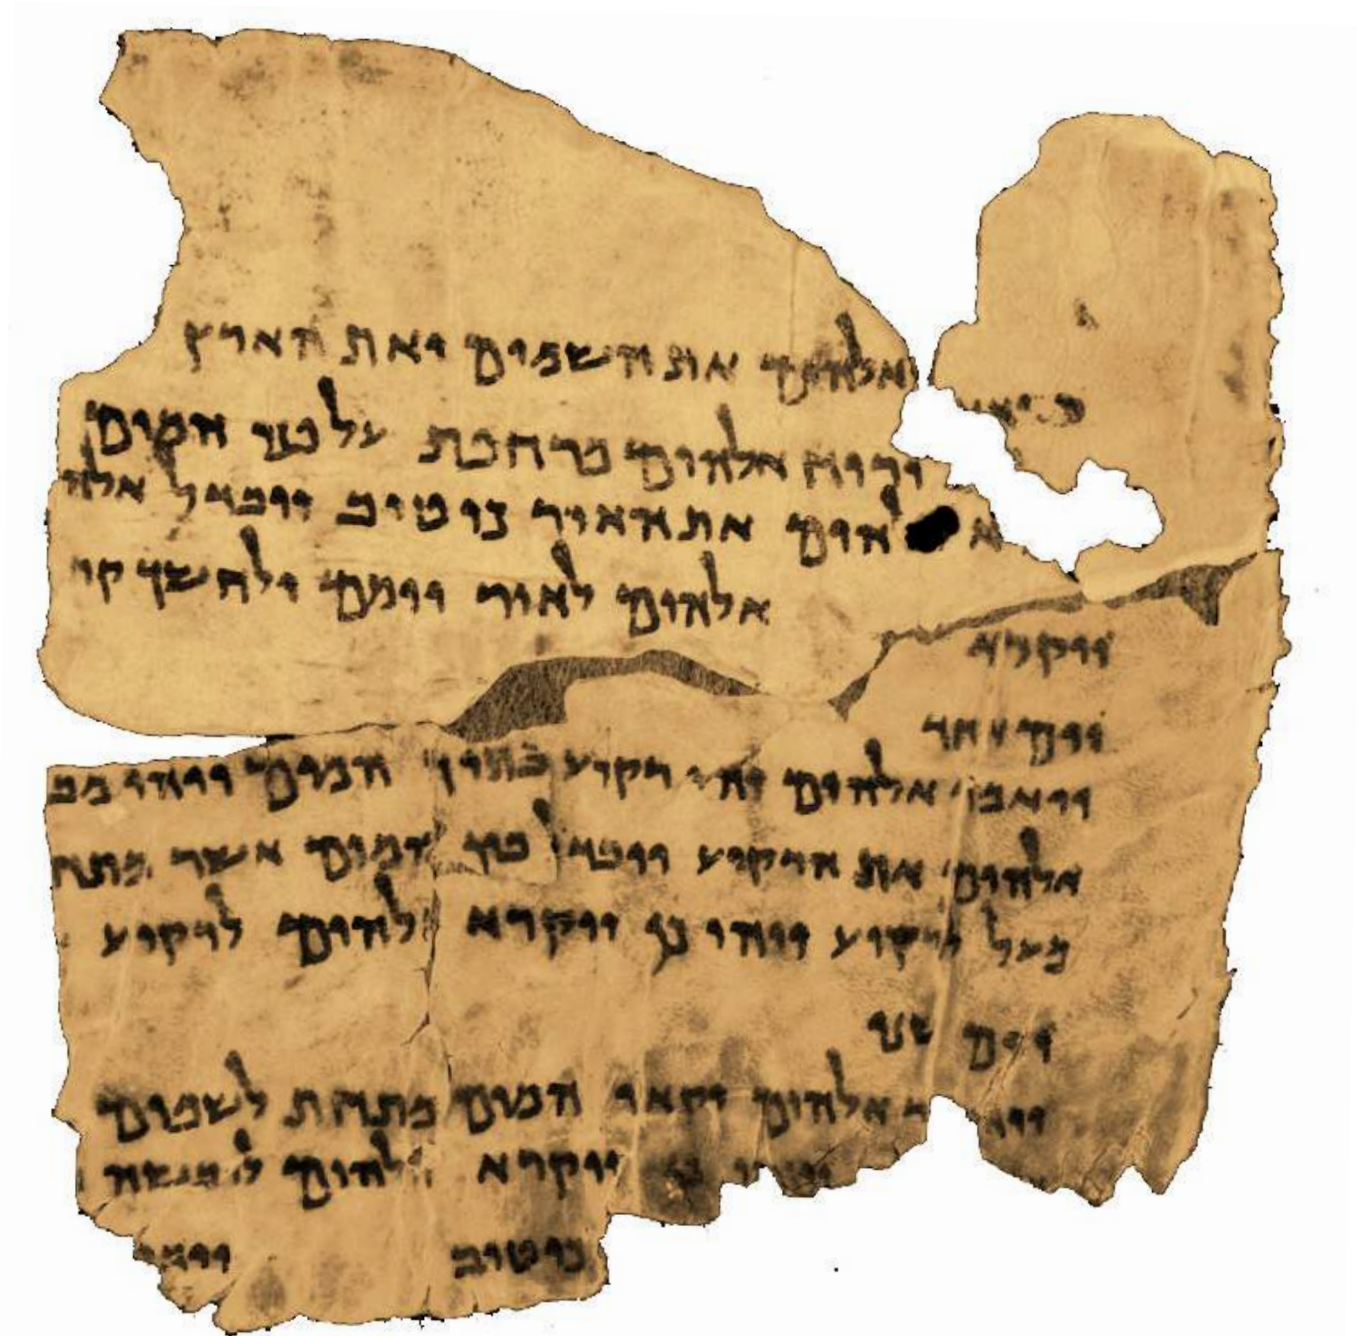 אלהים את השמים ואת הארץ
ורוח אלהים מרחפת על פני המים
אלהים את האור כי טוב ויבדל אלה
אלהים לאור יומם ולחשך קר
ויקרא
יום אחד
ויאמר אלהים יהי רקיע בתוך המים ויהי מב
אלהים את הרקיע ויבדל בין המים אשר מתח
מעל לרקיע ויהי כן ויקרא אלהים לרקיע
יום שני
אלהים יקאו המים מתחת לשמים
ויהי כן ויקרא אלהים ליבשה
כי טוב